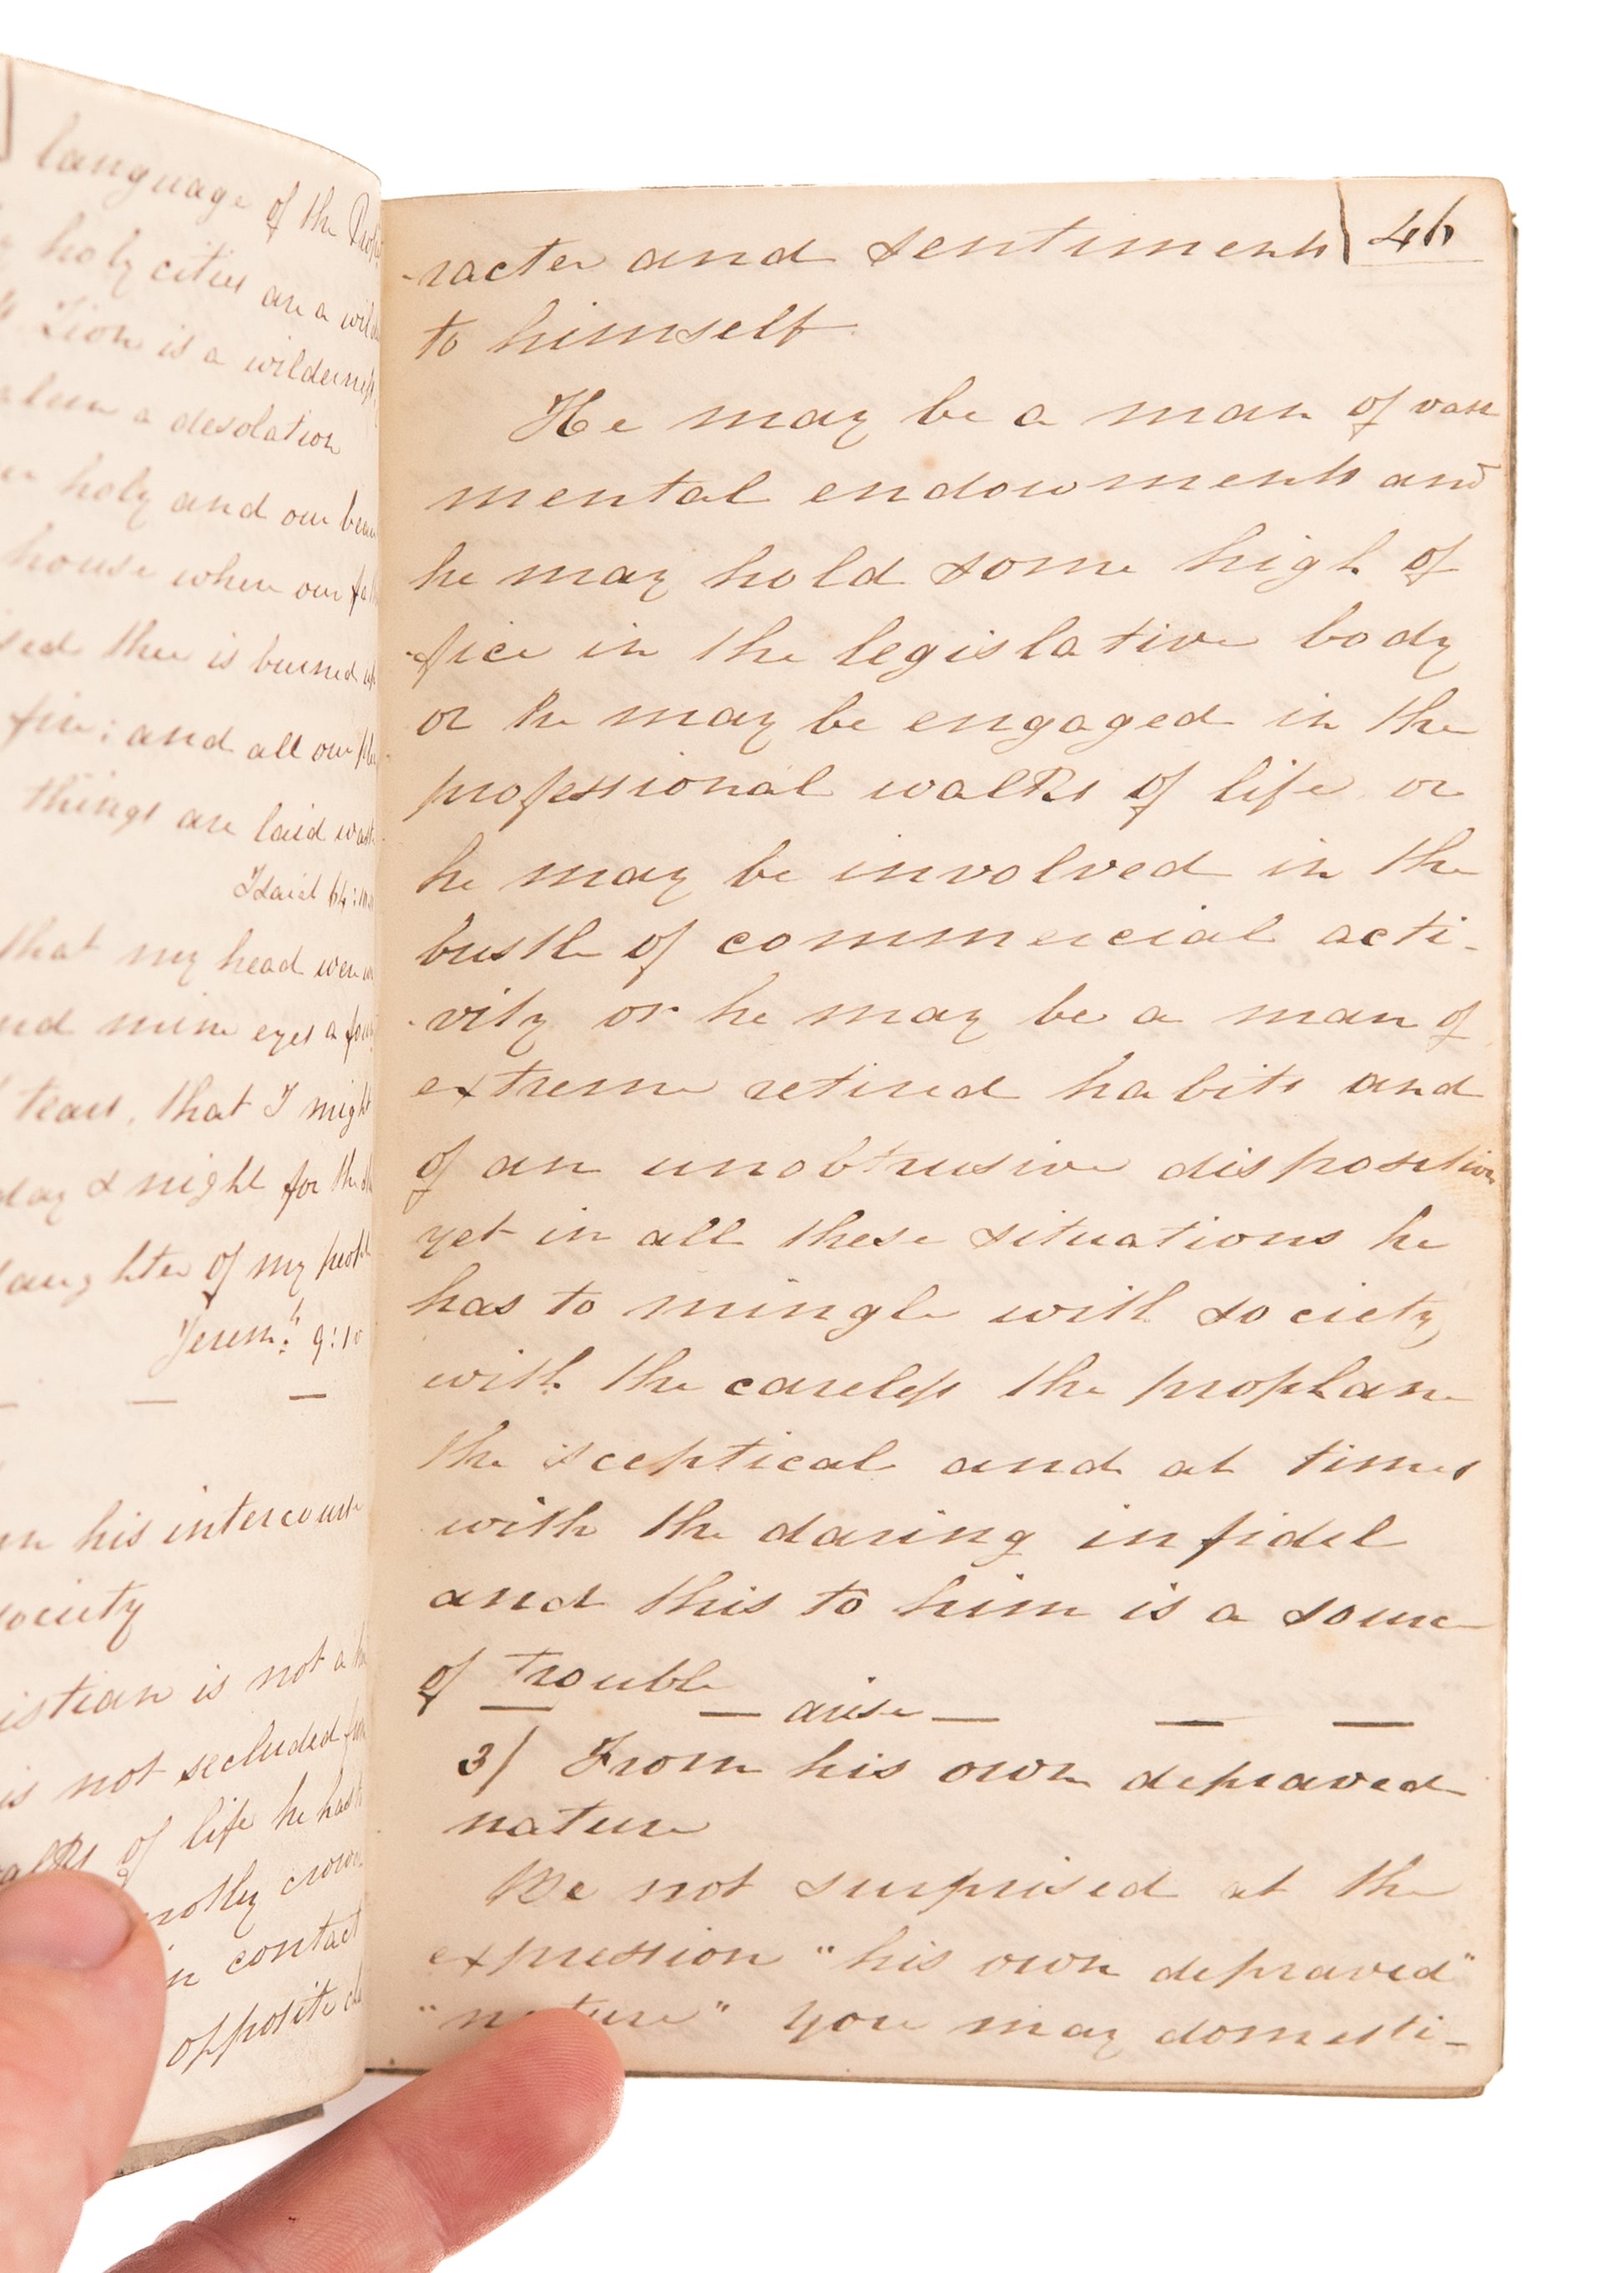 language of the
holy cities are a
Zion is a wilderness
a desolation
holy and our
house where our
thee is burned up
fire; and all our
things are laid
Isaiah 64:10
that my head were
mine eyes a
tears, that I might
day & night for the
daughter of my
Jerem.h 9:1
his intercourse
society
is not a
is not secluded
walks of life he has
motley crowd
in contact
opposite
46
-racter and sentiments
to himself
He may be a man of vast
mental endowments and
he may hold some high of
-fice in the legislative body
or he may be engaged in the
professional walks of life or
he may be involved in the
bustle of commercial acti-
-vity or he may be a man of
extreme retired habits and
of an unobtrusive disposition
yet in all these situations he
has to mingle with society,
with the careless the prophane
the sceptical and at times
with the daring infidel
and this to him is a source
of trouble
— — arise — — —
3/ From his own depraved
nature
Be not surprised at the
expression "his own depraved"
"nature" You may domesti-